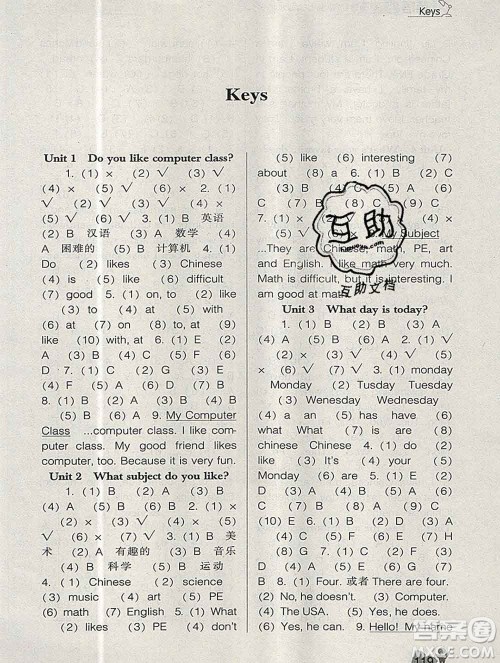 Keys
Keys
Unit 1 Do you like computer class?
1. (1) × (2) √ (3) √
(4) × (5) √ (6) × 2. (1)
√ (2) √ (3) × (4) ×
(5) √ (6) × 3. (1) B 英语
(2) B 汉语 (3) A 数学 (4)
A 困难的 (5) B 计算机 4. (1)
Do (2) likes (3) Chinese
(4) is (5) like (6) difficult
(7) good 5. (1) on, to (2)
like (3) to (4) at (5) with
(6) at (7) on (8) to (9)
like (10) with, at 6. (1) B
(2) A (3) B (4) C (5) A
7. (1) C (2) G (3) F (4)
D (5) B (6) E (7) A
8. (1) B (2) A (3) B (4)
B (5) B (6) A 9. My Computer
Class ...computer class. I like com-
puter class. My good friend likes
computer, too. Because it is very fun.
Unit 2 What subject do you like?
1. (1) B (2) A (3) A (4)
B (5) B (6) A 2. (1) √
(2) × (3) √ (4) √ (5)
√ (6) √ 3. (1) B 美
术 (2) A 有趣的 (3) B 音乐
(4) B 科学 (5) B 运动
4. (1) Chinese (2) science
(3) music (4) art (5) PE
(6) math (7) English 5. (1) What
(2) likes (3) don't (4) like
(5) like (6) interesting (7)
about (8) a 6. (1) B (2) C
(3) B (4) A (5) B (6) C
7. (1) × √ (4)
× (5) × 8. My Subject
...They are Chinese, math, PE, art
and English. I like math very much.
Math is difficult, but it is interesting. I
am good at math.
Unit 3 What day is today?
1. (1) B (2) A (3) A (4)
B (5) A (6) B 2. (1) √
(2) √ (3) √ (4) √ (5)
× (6) √ 3. (1) monday
Monday (2) Tusday Tuesday
(3) Wenesday Wednesday
(4) a an (5) has have (6)
what What (7) is are (8)
chinese Chinese 4. (1) do (2)
like (3) It's (4) your (5)
Monday (6) are 5. (1) E (2)
D (3) A (4) C (5) B
(6) H (7) F (8) I (9) G
(10) E 6. (1) B (2) C (3)
A (4) B (5) C (6) A 7. (1)
C (2) A (3) E (4) D (5)
B 8. (1) Four. 或者 There are four.
(2) No, he doesn't. (3) Computer.
(4) The USA. (5) Yes, he does.
(6) Yes, he can. 9. Hello! My name
119
互助
互助文档
答案圈
MXQE.COM